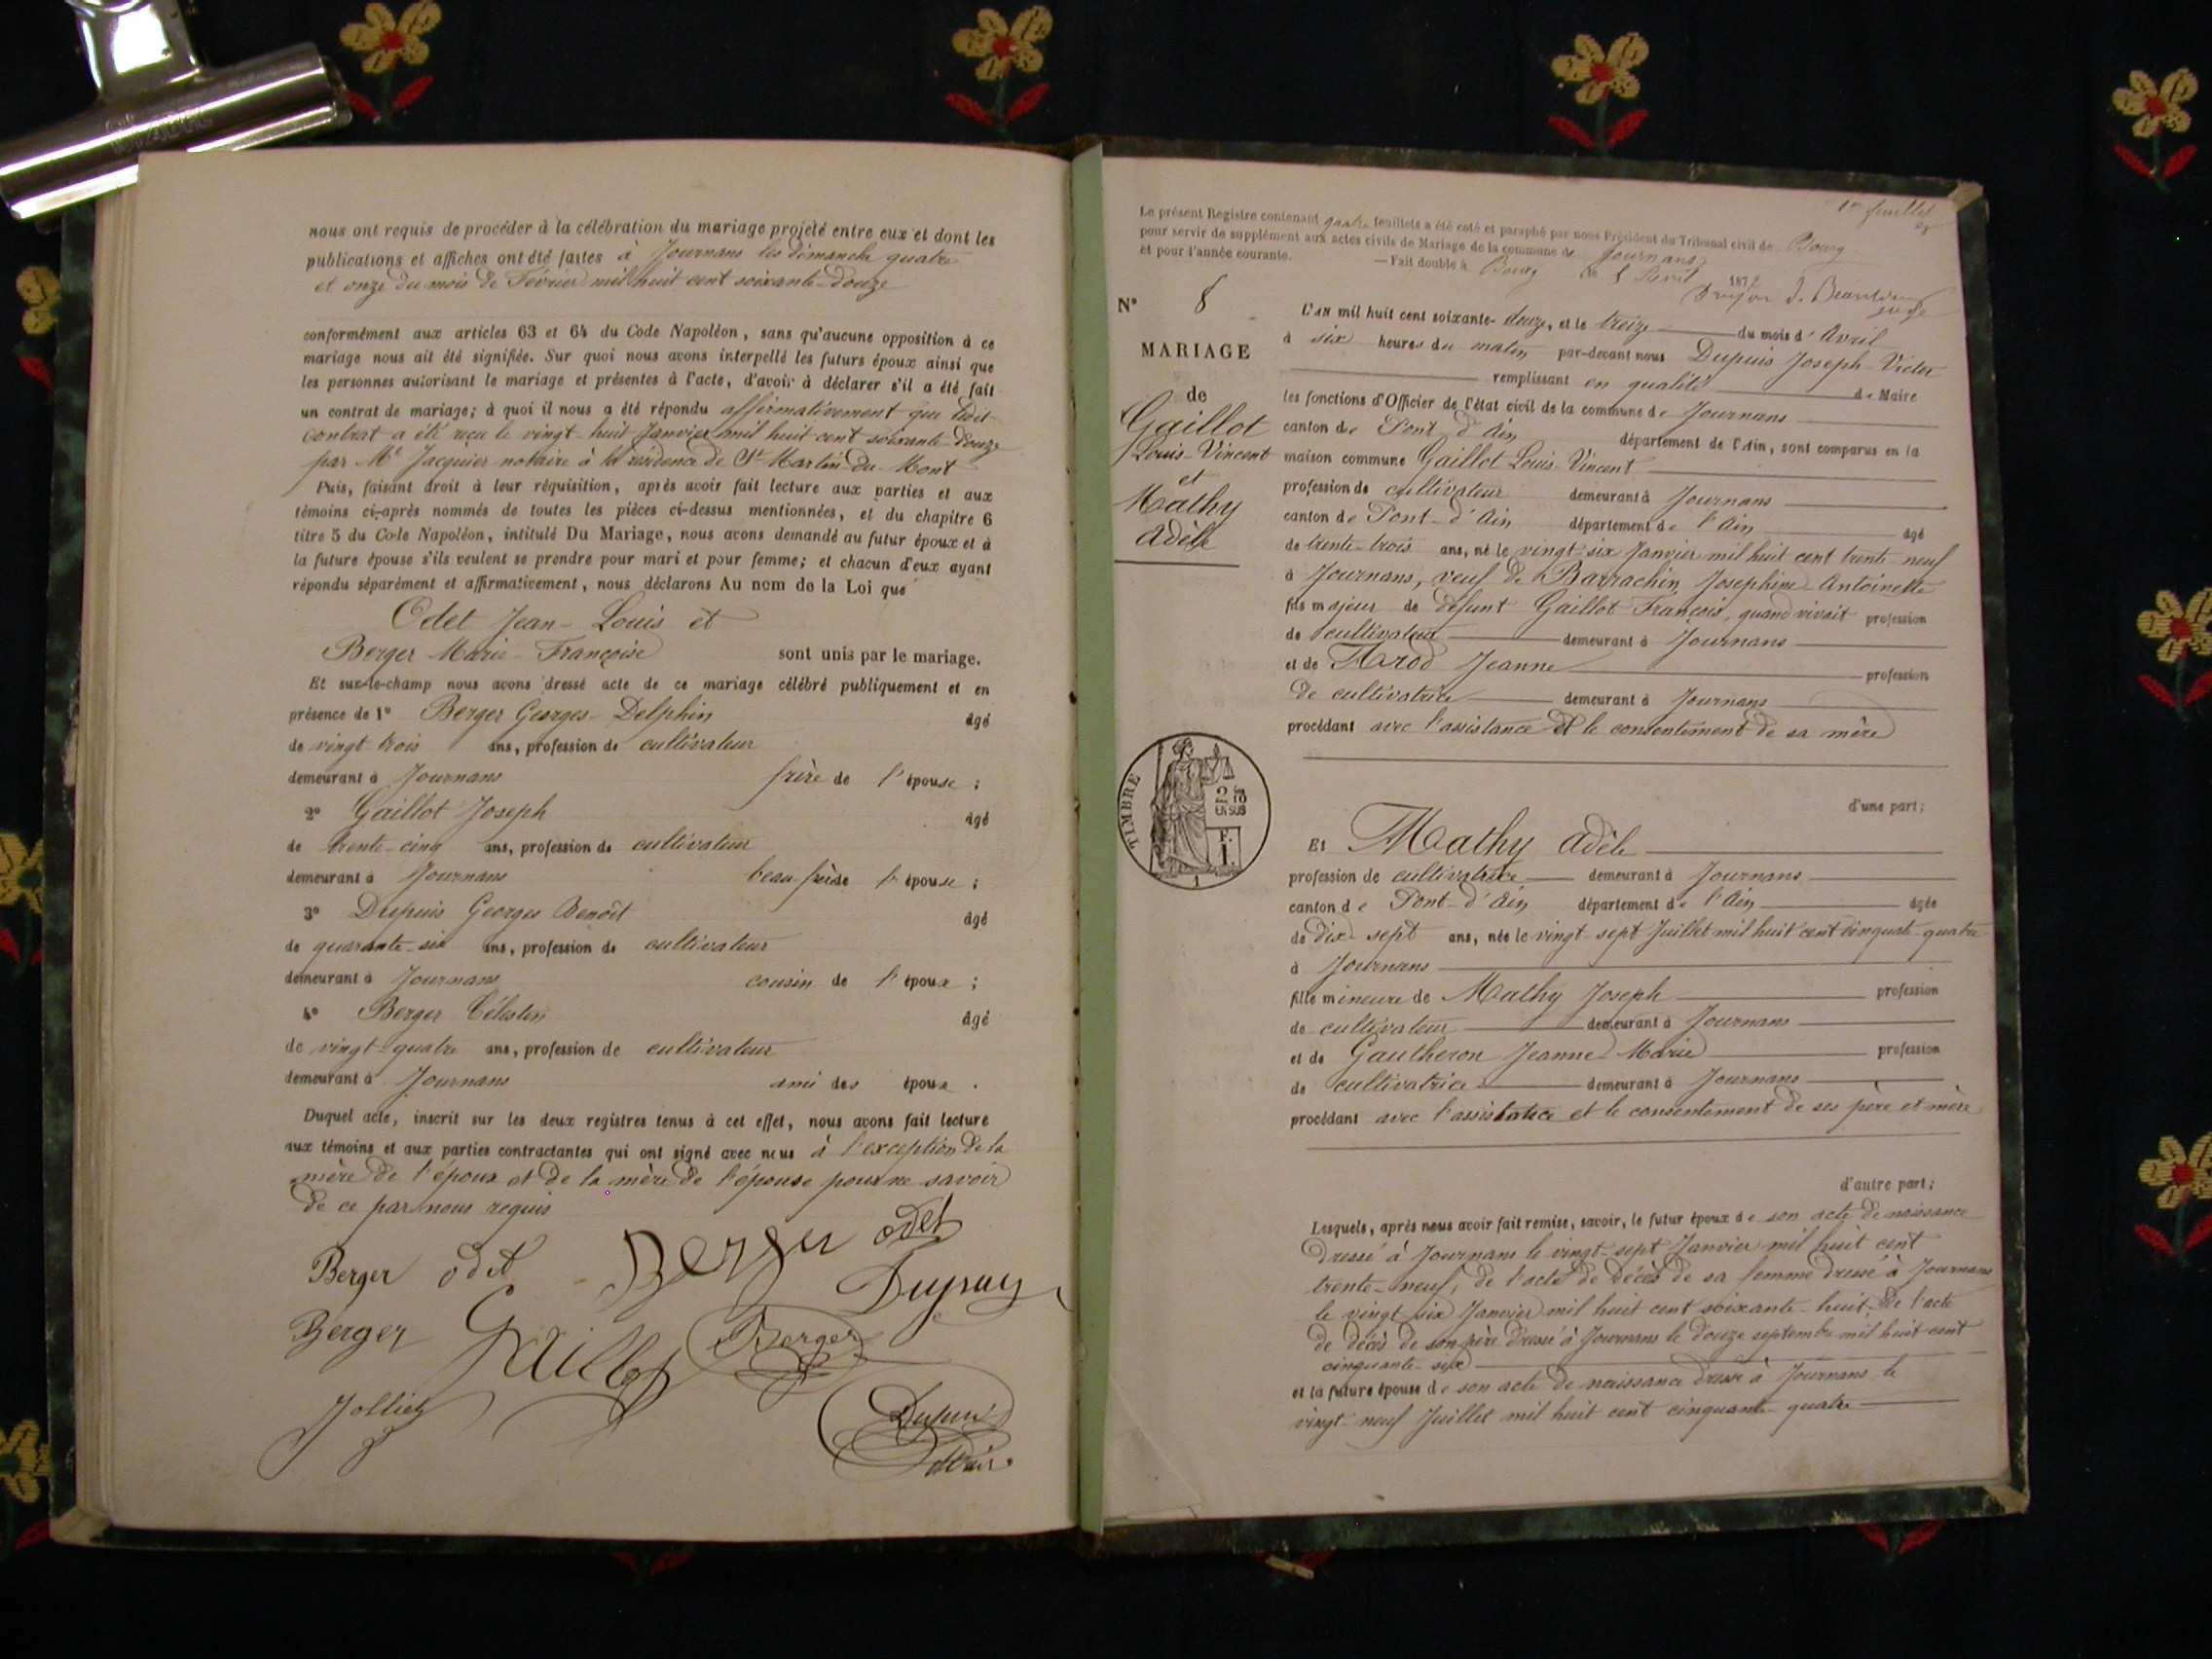 nous ont requis de procéder à la célébration du mariage projeté entre eux et dont les
publications et affiches ont été faites à Journans les dimanche quatre
et onze du mois de Février mil huit cent soixante-douze
conformément aux articles 63 et 64 du Code Napoléon, sans qu'aucune opposition à ce
mariage nous ait été signifiée. Sur quoi nous avons interpellé les futurs époux ainsi que
les personnes autorisant le mariage et présentes à l'acte, d'avoir à déclarer s'il a été fait
un contrat de mariage; à quoi il nous a été répondu affirmativement que ledit
contrat a été reçu le vingt-huit Janvier mil huit cent soixante-douze
par Me Jacquier notaire à la résidence de St Martin-du-Mont
Puis, faisant droit à leur réquisition, après avoir fait lecture aux parties et aux
témoins ci-après nommés de toutes les pièces ci-dessus mentionnées, et du chapitre 6
titre 5 du Code Napoléon, intitulé Du Mariage, nous avons demandé au futur époux et à
la future épouse s'ils veulent se prendre pour mari et pour femme; et chacun d'eux ayant
répondu séparément et affirmativement, nous déclarons Au nom de la Loi que
Odet Jean-Louis et
Berger Marie-Françoise sont unis par le mariage.
Et sur-le-champ nous avons dressé acte de ce mariage célébré publiquement et en
présence de 1° Berger Georges-Delphin âgé
de vingt-trois ans, profession de cultivateur
demeurant à Journans frère de l'épouse;
2° Gaillot Joseph âgé
de trente-cinq ans, profession de cultivateur
demeurant à Journans beau-frère de l'épouse;
3° Dupuis Georges Benoît âgé
de quarante-six ans, profession de cultivateur
demeurant à Journans cousin de l'époux;
4° Berger Célestin âgé
de vingt-quatre ans, profession de cultivateur
demeurant à Journans ami des époux.
Duquel acte, inscrit sur les deux registres tenus à cet effet, nous avons fait lecture
aux témoins et aux parties contractantes qui ont signé avec nous à l'exception de la
mère de l'époux et de la mère de l'épouse pour ne savoir
de ce par nous requis
Berger odet Berger odet
Dupuy
Berger Gaillot Berger
Jolliet
Dupuis
Maire
1er feuillet
Le présent Registre contenant quatre feuillets a été coté et paraphé par nous Président du Tribunal civil de Bourg
pour servir de supplément aux actes civils de Mariage de la commune de Journans
et pour l'année courante. — Fait double à Bourg le 8 avril 1872
juge
N° 8
MARIAGE
de
Gaillot
Louis-Vincent
et
Mathy
Adèle
TIMBRE
2/10
EN SUS
F.
1.
1
L'an mil huit cent soixante-douze, et le treize du mois d'Avril
à six heures du matin par-devant nous Dupuis Joseph-Victor
remplissant en qualité de Maire
les fonctions d'Officier de l'état civil de la commune de Journans
canton de Pont-d'Ain département de l'Ain, sont comparus en la
maison commune Gaillot Louis Vincent
profession de cultivateur demeurant à Journans
canton de Pont-d'Ain département de l'Ain âgé
de trente-trois ans, né le vingt-six Janvier mil huit cent trente-neuf
à Journans, veuf de Barrachin Josephine Antoinette
fils majeur de défunt Gaillot François, quand vivait profession
de cultivateur demeurant à Journans
et de Arod Jeanne profession
de cultivatrice demeurant à Journans
procédant avec l'assistance et le consentement de sa mère
d'une part;
Et Mathy Adèle
profession de cultivatrice demeurant à Journans
canton de Pont-d'Ain département de l'Ain âgée
de dix-sept ans, née le vingt-sept Juillet mil huit cent cinquante-quatre
à Journans
fille mineure de Mathy Joseph profession
de cultivateur demeurant à Journans
et de Gautheron Jeanne Marie profession
de cultivatrice demeurant à Journans
procédant avec l'assistance et le consentement de ses père et mère
d'autre part;
Lesquels, après nous avoir fait remise, savoir, le futur époux de son acte de naissance
dressé à Journans le vingt-sept Janvier mil huit cent
trente-neuf, de l'acte de décès de sa femme dressé à Journans
le vingt six Janvier mil huit cent soixante-huit, de l'acte
de décès de son père dressé à Journans le douze septembre mil huit cent
cinquante-six
et la future épouse de son acte de naissance dressé à Journans le
vingt-neuf Juillet mil huit cent cinquante-quatre